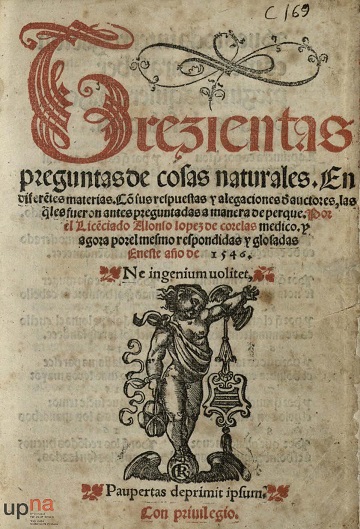 C 169
Trezientas
preguntas de cosas naturales. En
diferẽtes materias. Cõ sus respuestas y alegaciones ď auctores, las
q̃les fueron antes preguntadas a manera de perque. Por
el Licẽciado Alonso lopez de corelas medico. y
agora por el mesmo respondidas y glosadas
En este año de 1546.
Ne ingenium uolitet,
R
Paupertas deprimit ipsum.
Con priuilegio.
upna